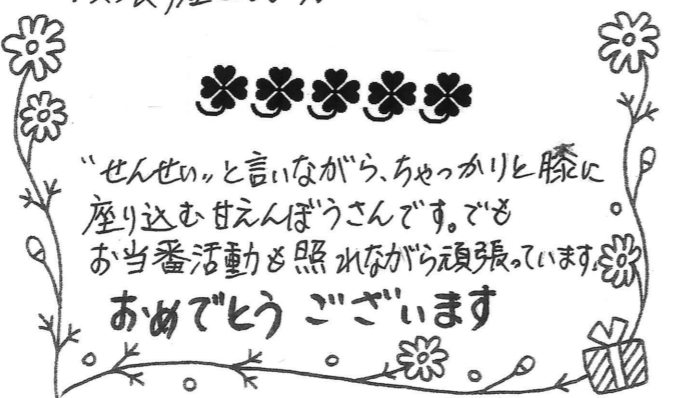 "せんせい"と言いながら、ちゃっかりと膝に
座り込む甘えんぼうさんです。でも
お当番活動も照れながら頑張っています。
おめでとう ございます